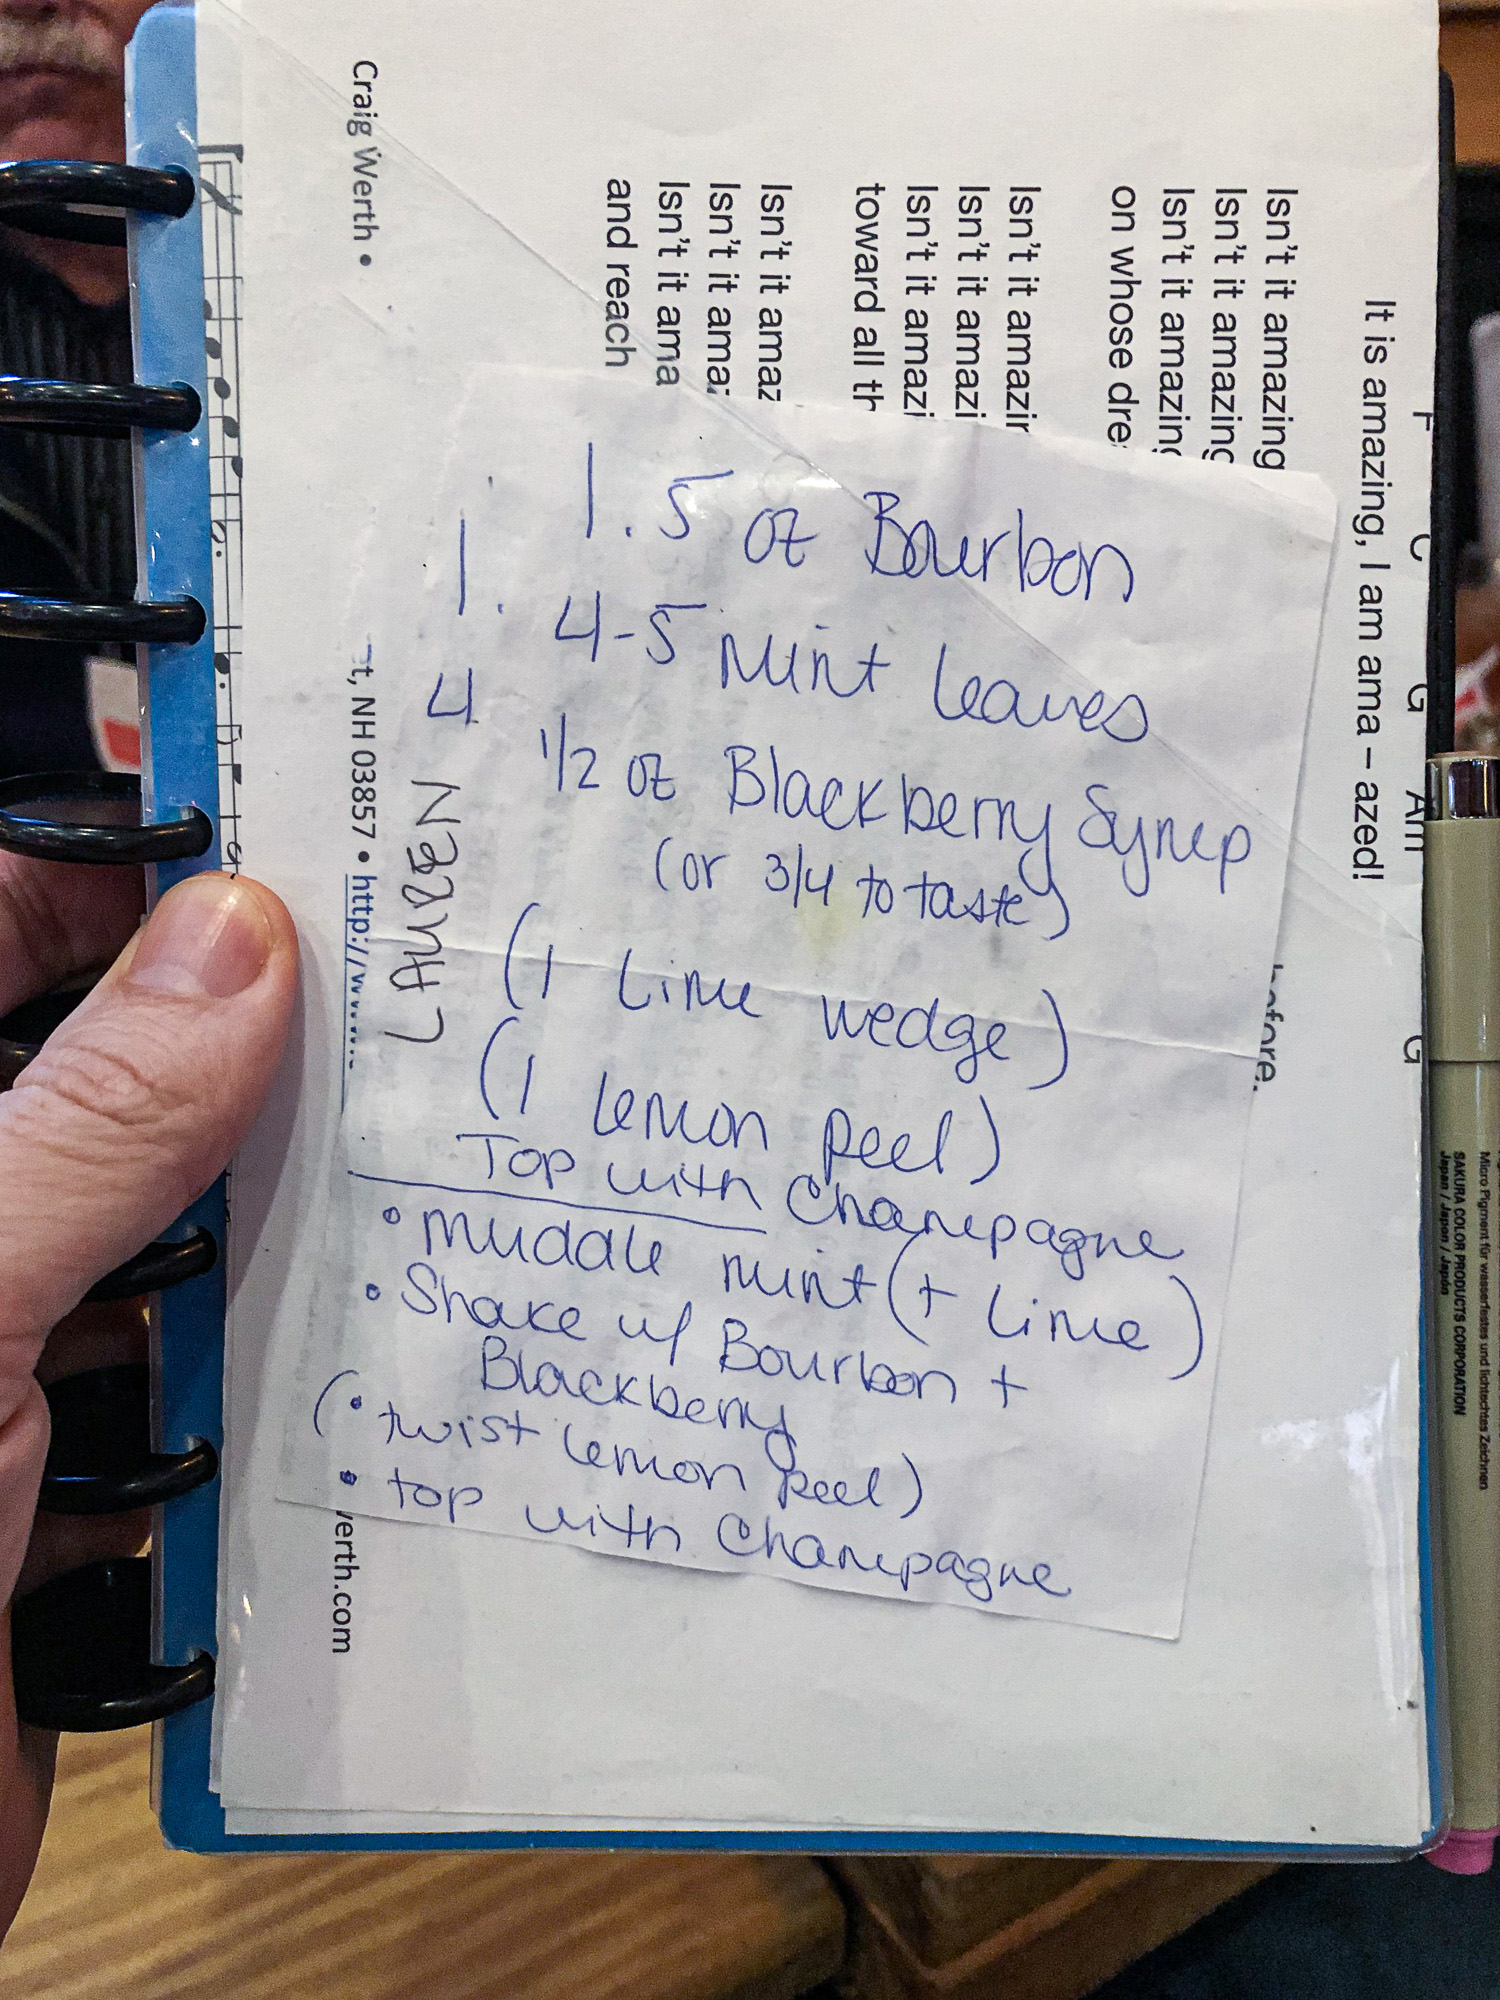 1.5 oz Bourbon
4-5 Mint Leaves
1/2 oz Blackberry Syrup
(or 3/4 to taste)
(1 Lime wedge)
(1 Lemon peel)
Top with Champagne
• Muddle mint (+ Lime)
• Shake w/ Bourbon +
Blackberry
(• twist Lemon peel)
• top with Champagne
1.
4
LAUREN
F C G Am G
It is amazing, I am ama – azed!
Isn't it amazing
Isn't it amazing
Isn't it amazing
on whose
before.
Isn't it
Isn't it
Isn't it
toward all
Isn't it
Isn't it
Isn't it
and reach
Craig Werth •
NH 03857 • http://www.
erth.com
Micro Pigment für wasserfestes und lichtechtes Zeichnen
SAKURA COLOR PRODUCTS CORPORATION
Japan / Japon / Japón